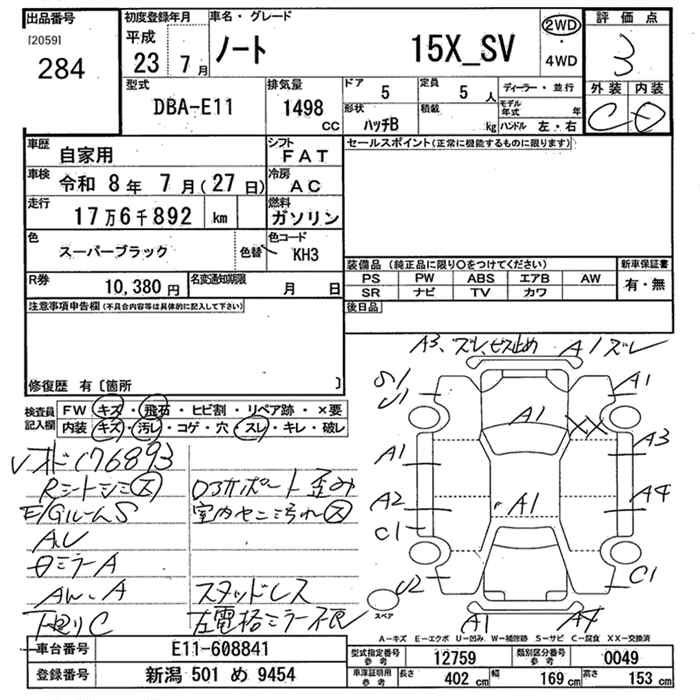 出品番号
[2059]
284
初度登録年月
平成
23 7月
車名・グレード
ノート 15X_SV
2WD
・
4WD
評価点
3
外装 内装
C D
型式
DBA-E11
排気量
1498
CC
ドア
5
定員
5 人
形状
ハッチB
積載
kg
ディーラー・並行
モデル年式 年
ハンドル 左・右
車歴
自家用
シフト
FAT
車検
令和 8年 7月(27日)
冷房
AC
走行
17万6千892 km
燃料
ガソリン
色
スーパーブラック
色替
色コード
KH3
R券
10,380 円
名変通知期限
月 日
セールスポイント(正常に機能するものに限ります)
装備品 (純正品に限り〇をつけてください)
PS PW ABS エアB AW
SR ナビ TV カワ
新車保証書
有・無
後日品
注意事項申告欄(不具合内容等は具体的に記入して下さい)
修復歴 有〔箇所 〕
検査員記入欄
FW キズ・飛石・ヒビ割・リペア跡・×要
内装 キズ・汚レ・コゲ・穴・スレ・キレ・破レ
176893
Rシートシミ
E/GルームS
A.U
ミラーA
AW.A
下廻りC
歪み
室内
スタッドレス
左電格ミラー不良
A3、ズレ、ビス止め
A1ズレ
S1
U1
A1
A1
XX
A1
A3
A2
A1
A4
C1
U2
C1
スペア
A1
A4
A-キズ E-エクボ U-凹み W-補修跡 S-サビ C-腐食 XX-交換済
車台番号
E11-608841
登録番号
新潟 501 め 9454
型式指定番号
参考
12759
類別区分番号
参考
0049
車庫証明用
参考
長さ
402 cm
幅
169 cm
高さ
153 cm